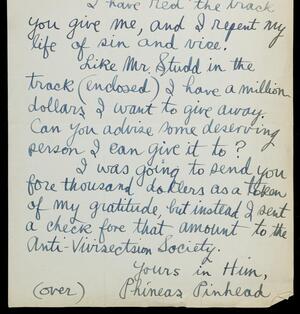 I have red the track
you give me, and I repent my
life of sin and vice.
Like Mr. Studd in the
track (enclosed) I have a million
dollars I want to give away.
Can you advise some deserving
person I can give it to?
I was going to send you
fore thousand dollers as a token
of my gratitude, but instead I sent
a check fore that amount to the
Anti-Vivisectsion Society.
Yours in Him,
(over) Phineas Pinhead